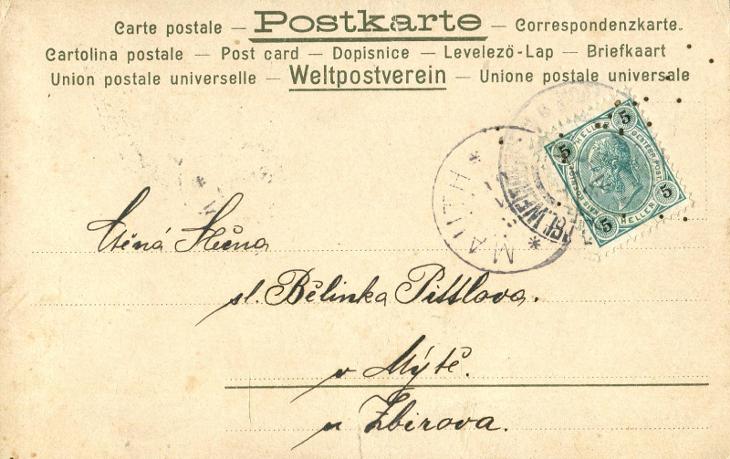 Carte postale — Postkarte — Correspondenzkarte.
Cartolina postale — Post card — Dopisnice — Levelező-Lap — Briefkaart
Union postale universelle — Weltpostverein — Unione postale universale
MAUTH
5 5 5 5
HELLER
OESTERR. POST.
HELLER
Ctěná Slečna
sl. Bělinka Pittlova.
v Mýtě.
u Zbirova.